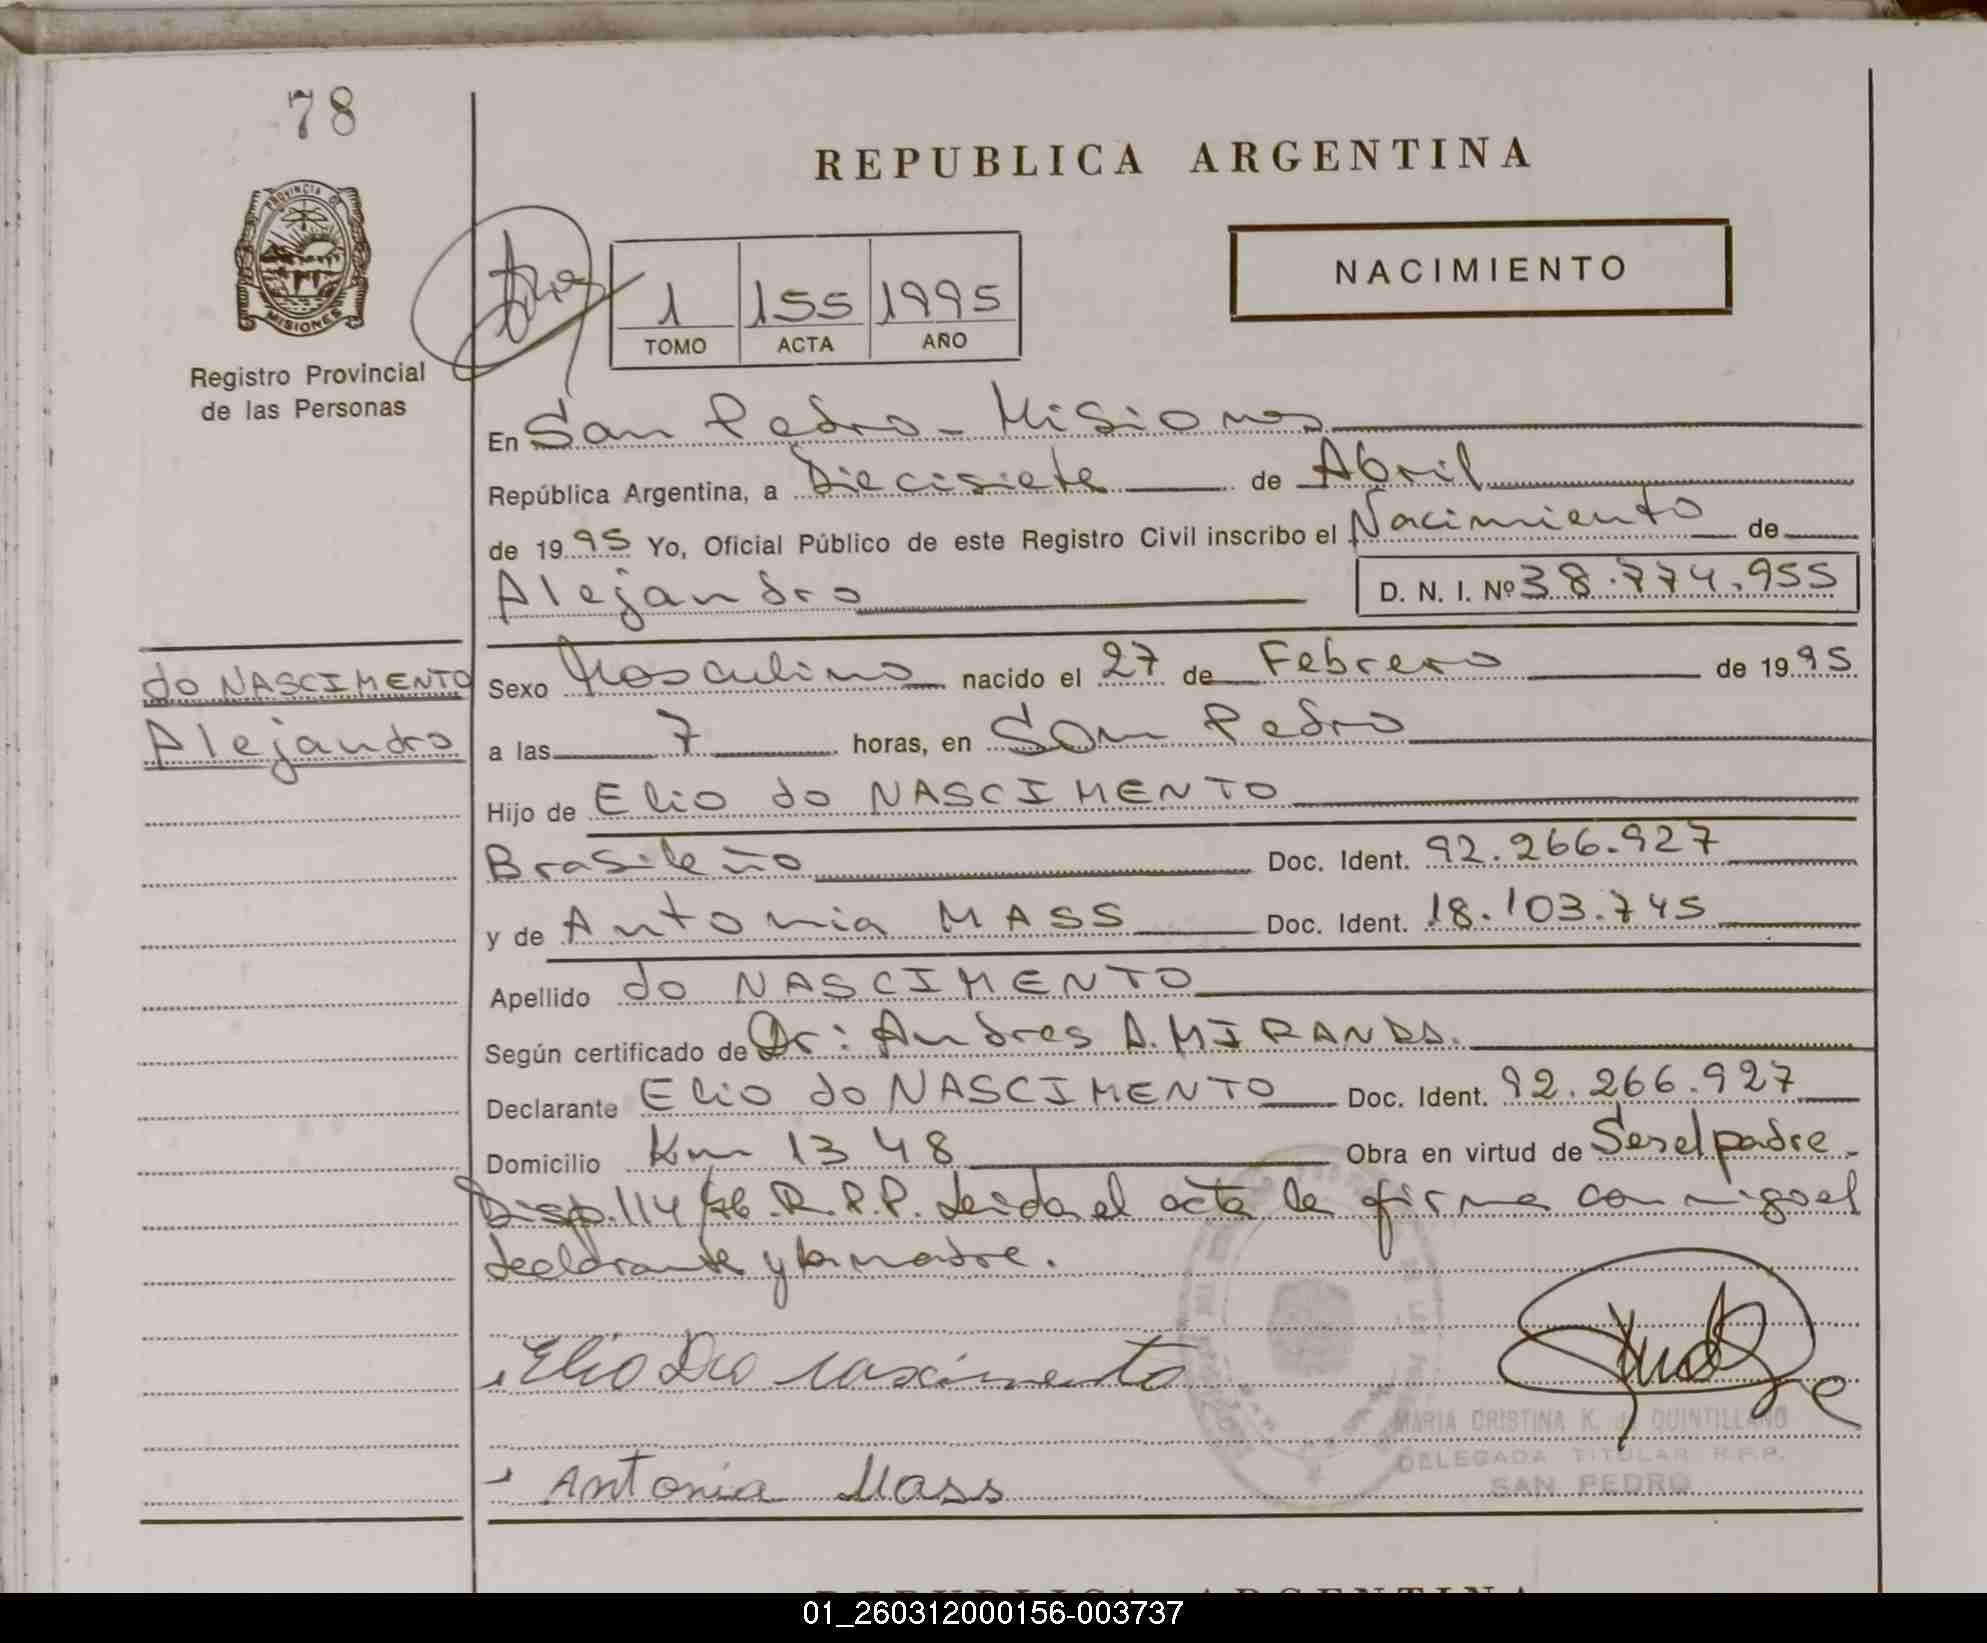 78
REPUBLICA ARGENTINA
PROVINCIA
MISIONES
Registro Provincial
de las Personas
1 155 1995
TOMO ACTA AÑO
NACIMIENTO
En San Pedro - Misiones
República Argentina, a Diecisiete de Abril
de 1995 Yo, Oficial Público de este Registro Civil inscribo el Nacimiento de
Alejandro D. N. I. Nº 38.774.955
do NASCIMENTO
Alejandro
Sexo Masculino nacido el 27 de Febrero de 1995
a las 7 horas, en San Pedro
Hijo de Elio do NASCIMENTO
Brasileño Doc. Ident. 92.266.927
y de Antonia MASS Doc. Ident. 18.103.745
Apellido do NASCIMENTO
Según certificado de Dr: Andres A. MIRANDA.
Declarante Elio do NASCIMENTO Doc. Ident. 92.266.927
Domicilio Km 1348 Obra en virtud de Ser el padre -
Disp. 114/76 R.P.P. Leida el acta la firma conmigo el
declarante y la madre.
Elio Do nascimento
Antonia Mass
MARIA CRISTINA K. de QUINTILLANO
DELEGADA TITULAR R.P.P.
SAN PEDRO
REPUBLICA ARGENTINA
01_260312000156-003737